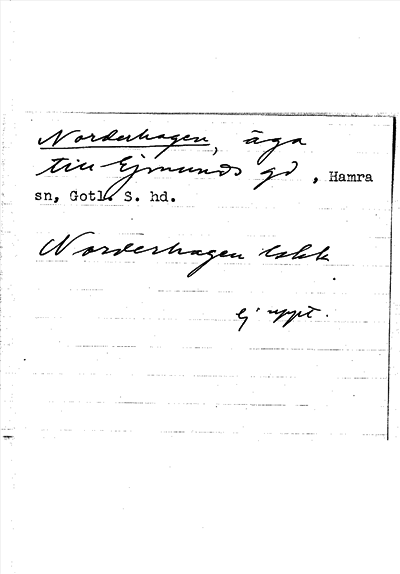 Norderhagen, äga
till Ejmunds gd, Hamra
sn, Gotl. S. hd.
Norderhagen
ej uppt.